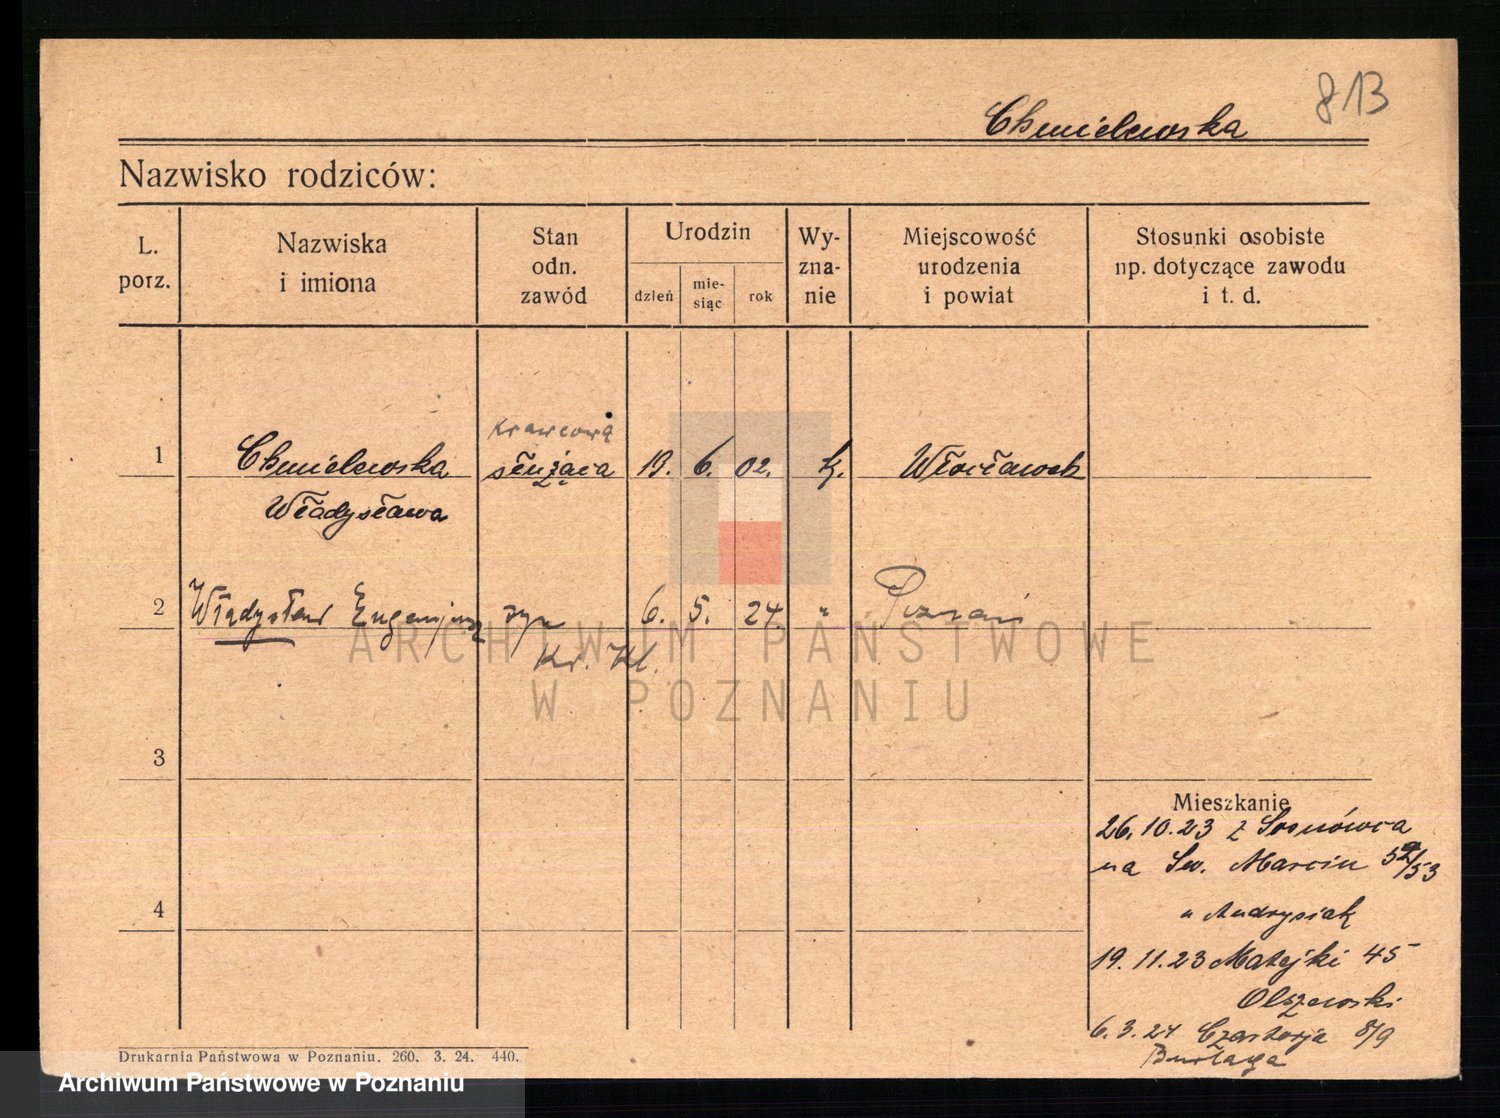 813
Chmielewska
Nazwisko rodziców:
L. porz.
Nazwiska i imiona
Stan odn. zawód
Urodzin
dzień
mie-siąc
rok
Wy-zna-nie
Miejscowość urodzenia i powiat
Stosunki osobiste np. dotyczące zawodu i t. d.
krawcowa
1 Chmielewska służąca 13. 6. 02. k. Włocławek
Władysława
2 Władysław Eugenjusz syn 6. 5. 24. " Poznań
Kr. Kl.
ARCHIWUM PAŃSTWOWE
W POZNANIU
3
Mieszkanie
26.10.23 z Sosnówca
na Św. Marcin 52/53
4
u Andrysiak
19.11.23 Matejki 45
Olszewski
6.3.24 Czartorja 8/9
Drukarnia Państwowa w Poznaniu. 260. 3. 24. 440.
Archiwum Państwowe w Poznaniu